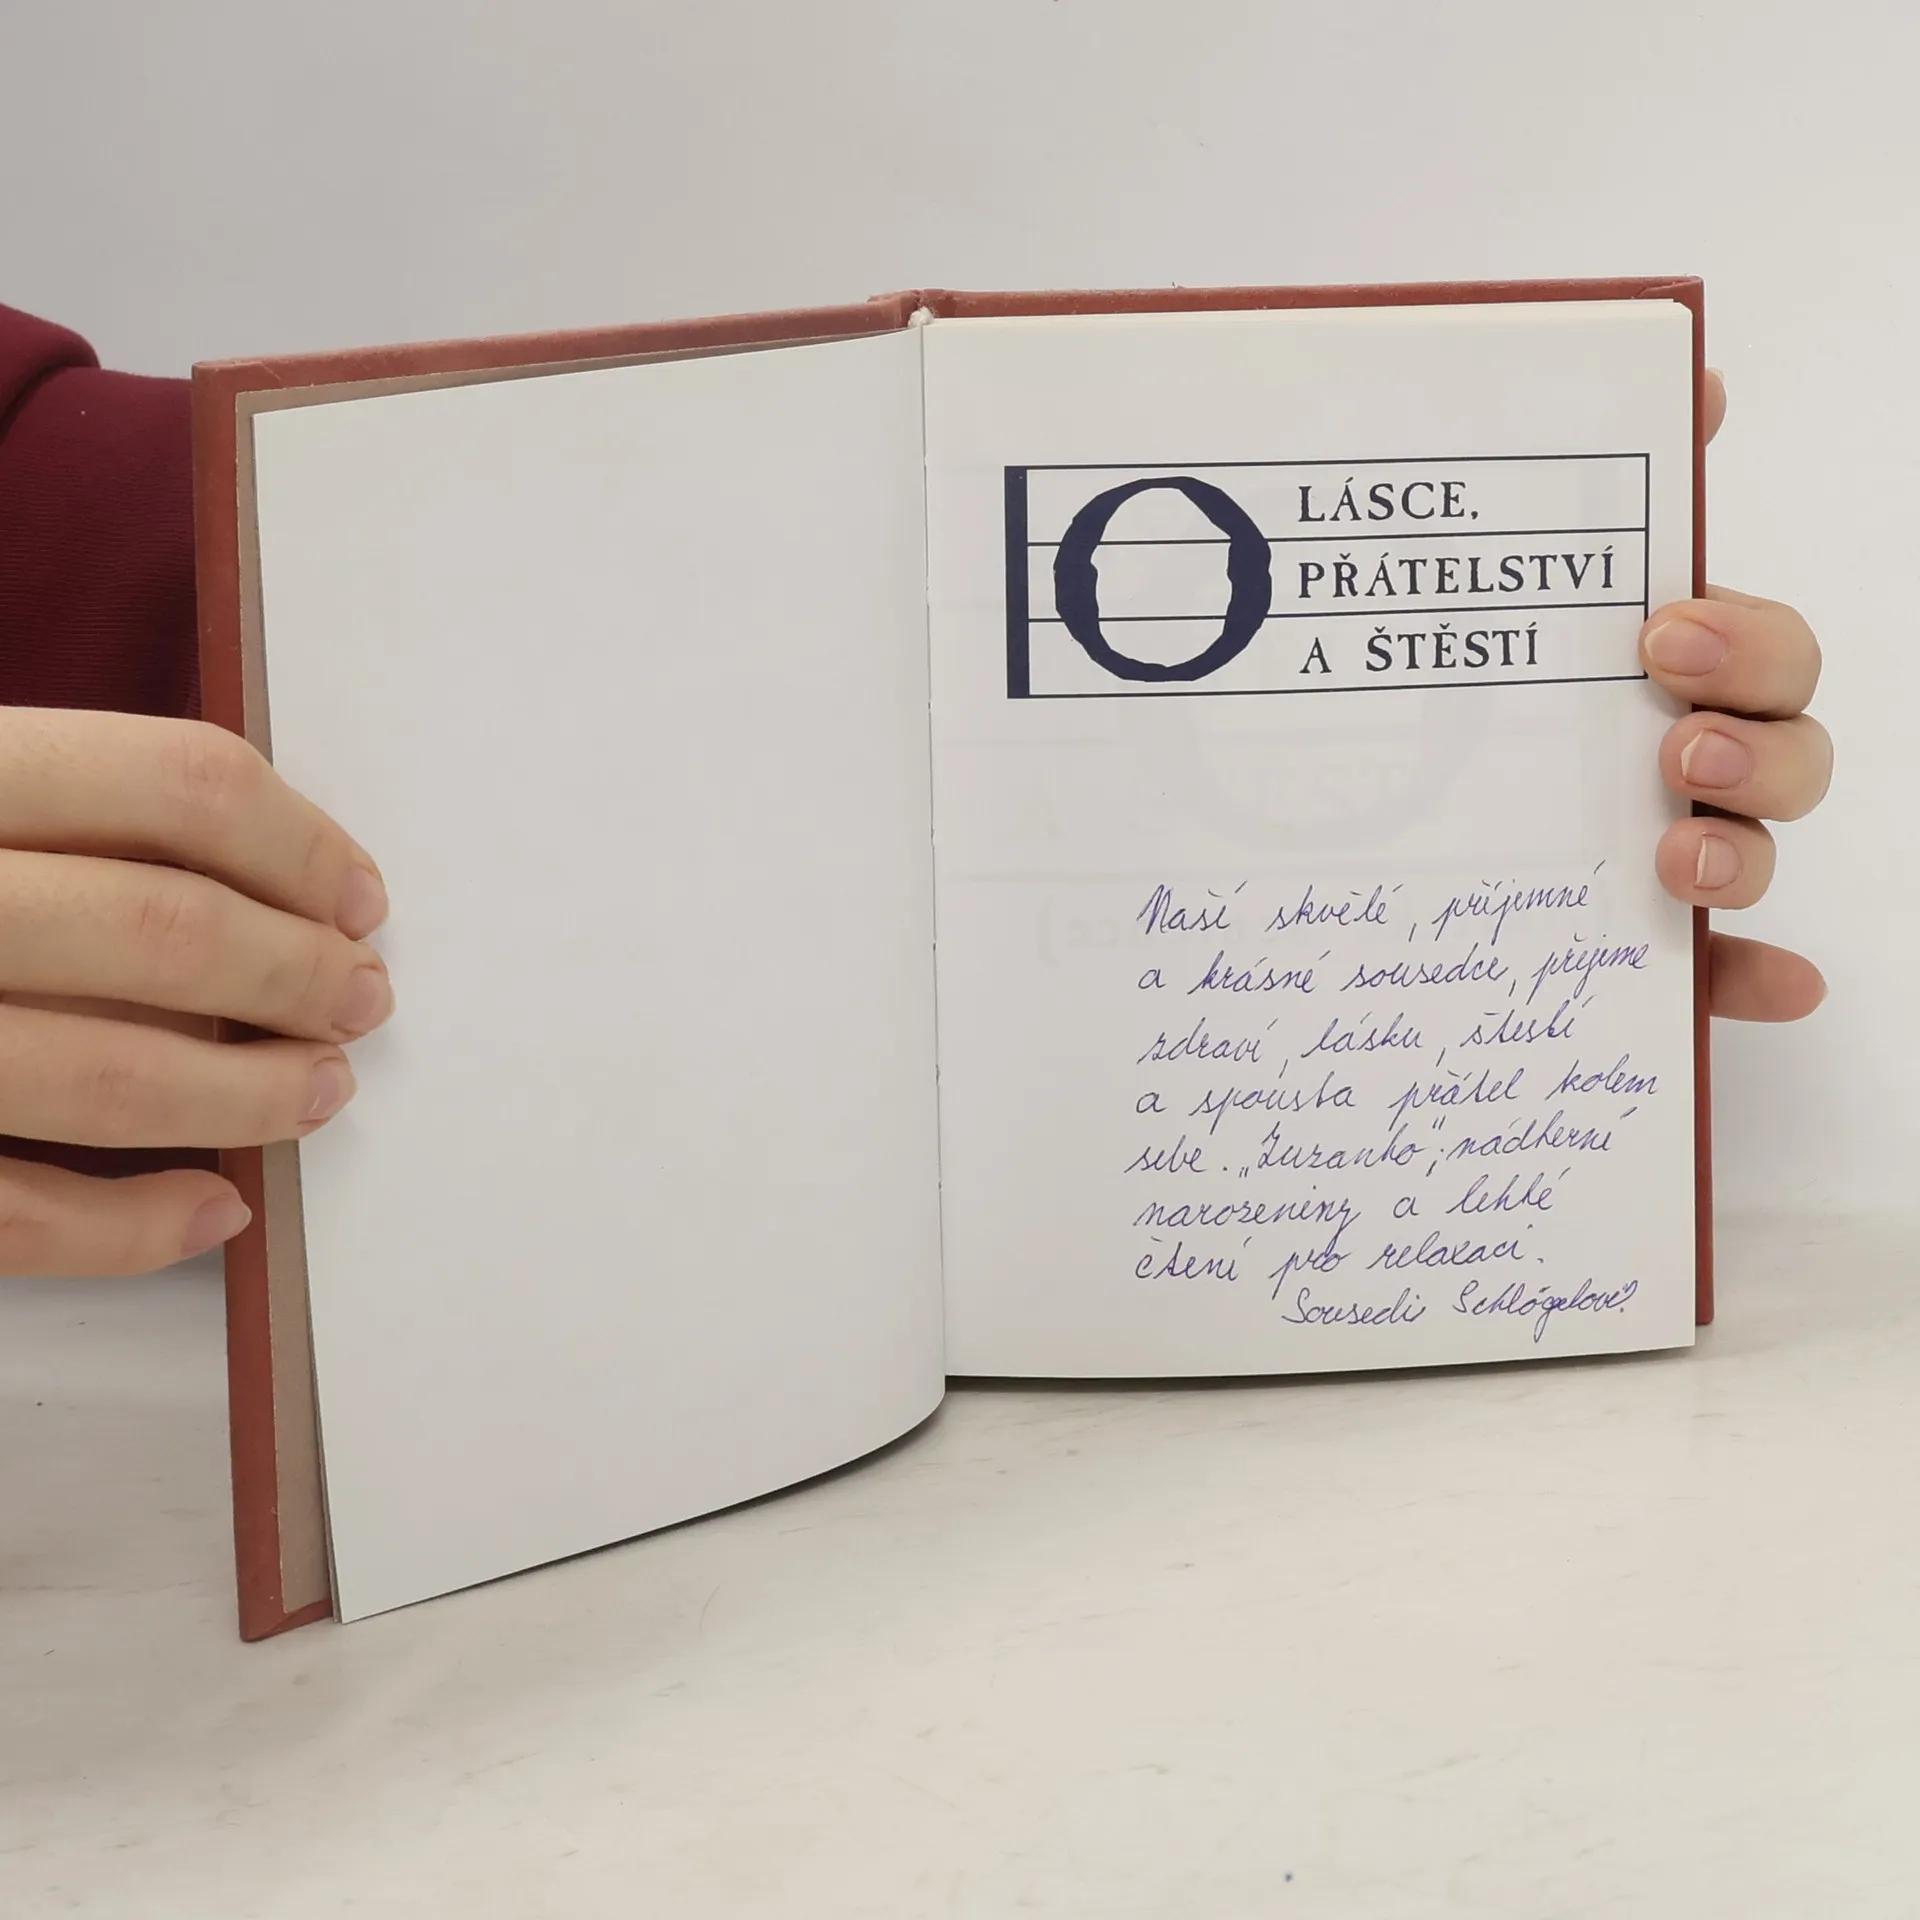 O LÁSCE,
PŘÁTELSTVÍ
A ŠTĚSTÍ
Naší skvělé, příjemné
a krásné sousedce, přejeme
zdraví, lásku, štestí
a spousta přátel kolem
sebe. „Zuzanko“, nádherné
narozeniny a lehké
čtení pro relaxaci.
Sousedi Schlögelovi